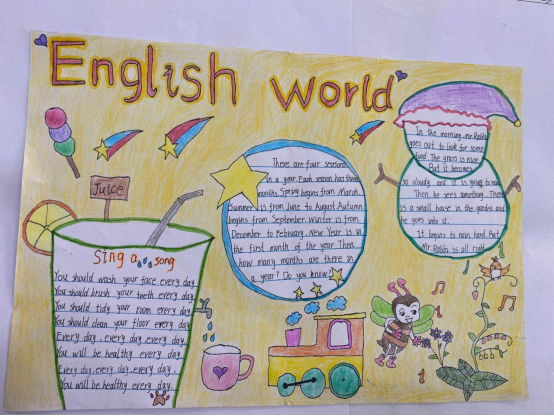 English World
Juice
Sing a song
You should wash your face every day.
You should brush your teeth every day.
You should tidy your room every day.
You should clean your floor every day.
Every day, every day, every day,
You will be healthy every day.
Every day, every day, every day,
You will be healthy every day.
There are four seasons
in a year. Each season has three
months. Spring begins from March.
Summer is from June to August. Autumn
begins from September. Winter is from
December to February. New Year is in
the first month of the year. Then
how many months are there in
a year? Do you know?
In the morning, Mr Rabbi
goes out to look for some
food. The grass is nice.
But it becomes
so cloudy and it is going to
Then he sees something. There
is a small house in the garden and
he goes into it.
It begins to rain hard. But
Mr Rabbi is all right.